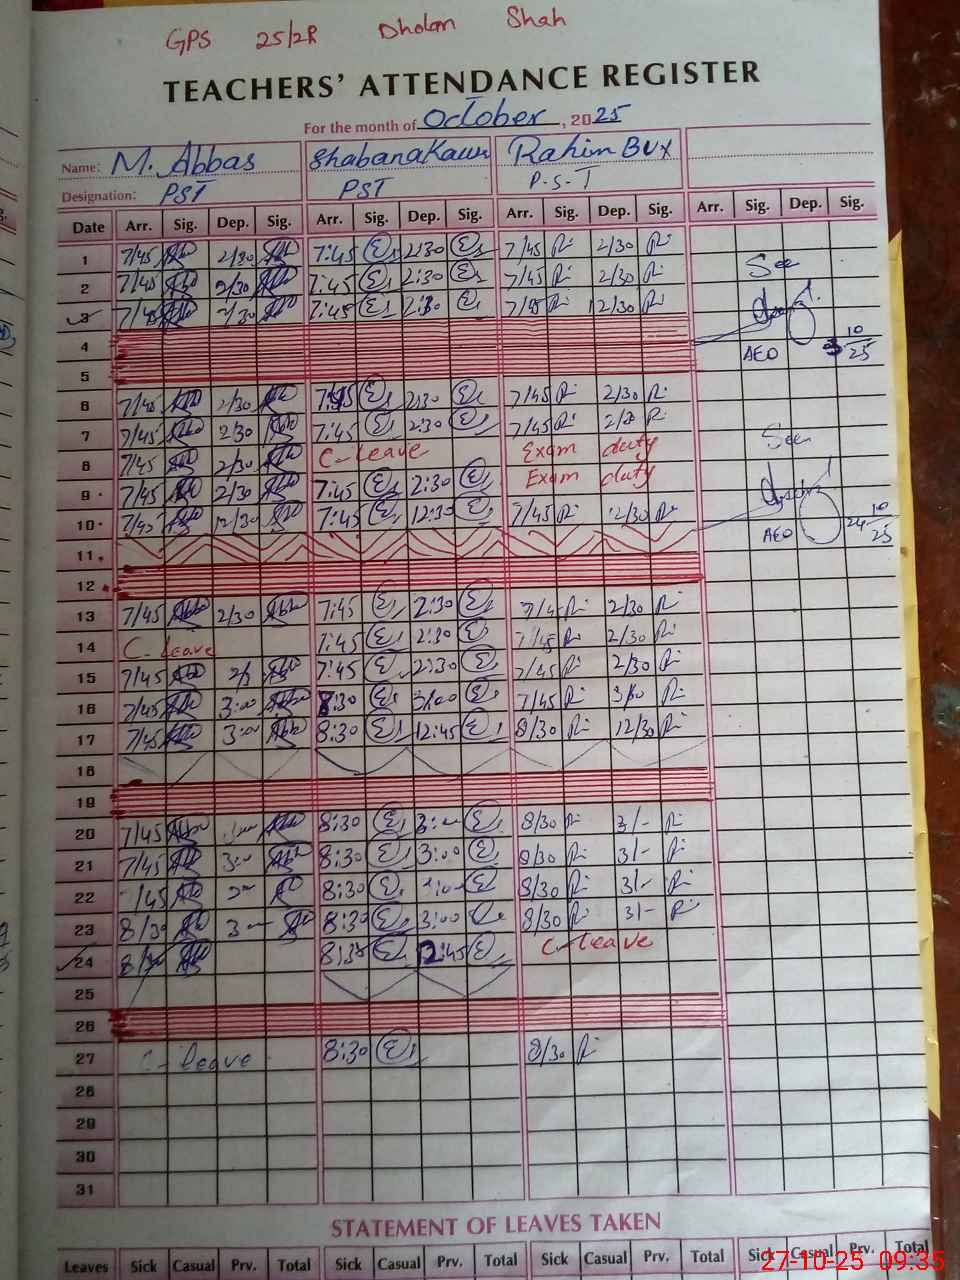 GPS 25/2R Dholan Shah
TEACHERS' ATTENDANCE REGISTER
For the month of October, 2025
Name: M. Abbas Shabana Kausr Rahim Bux
Designation: PST PST P.S.T
Date Arr. Sig. Dep. Sig. Arr. Sig. Dep. Sig. Arr. Sig. Dep. Sig. Arr. Sig. Dep. Sig.
1 7/45 2/30 7:45 2:30 7/45 2/30
2 7/45 2/30 7:45 2:30 7/45 2/30 See
3 7/45 2/30 7:45 2:30 7/45 12/30
4 AEO 3 10/25
5
6 7/45 2/30 7:45 2:30 7/45 2/30
7 7/45 2/30 7:45 2:30 7/45 2/30 See
8 7/45 2/30 C-leave Exam duty
9 7/45 2/30 7:45 2:30 Exam duty
10 7/45 12/30 7:45 12:30 7/45 12/30 AEO 24 10/25
11
12
13 7/45 2/30 7:45 2:30 7/45 2/30
14 C-leave 7:45 2:30 7/45 2/30
15 7/45 2/3 7:45 2:30 7/45 2/30
16 7/45 3:00 8:30 3:00 7/45 3/00
17 7/45 3:00 8:30 12:45 8/30 12/30
18
19
20 7/45 8:30 3:00 8/30 3/-
21 7/45 3:00 8:30 3:00 8/30 3/-
22 /45 8:30 8/30 3/-
23 8/30 3 8:30 3:00 8/30 3/-
24 8/30 8:30 12:45 C-leave
25
26
27 C-leave 8:30 8/30
28
29
30
31
STATEMENT OF LEAVES TAKEN
Leaves Sick Casual Prv. Total Sick Casual Prv. Total Sick Casual Prv. Total Sick Casual Prv. Total
27-10-25 09:35